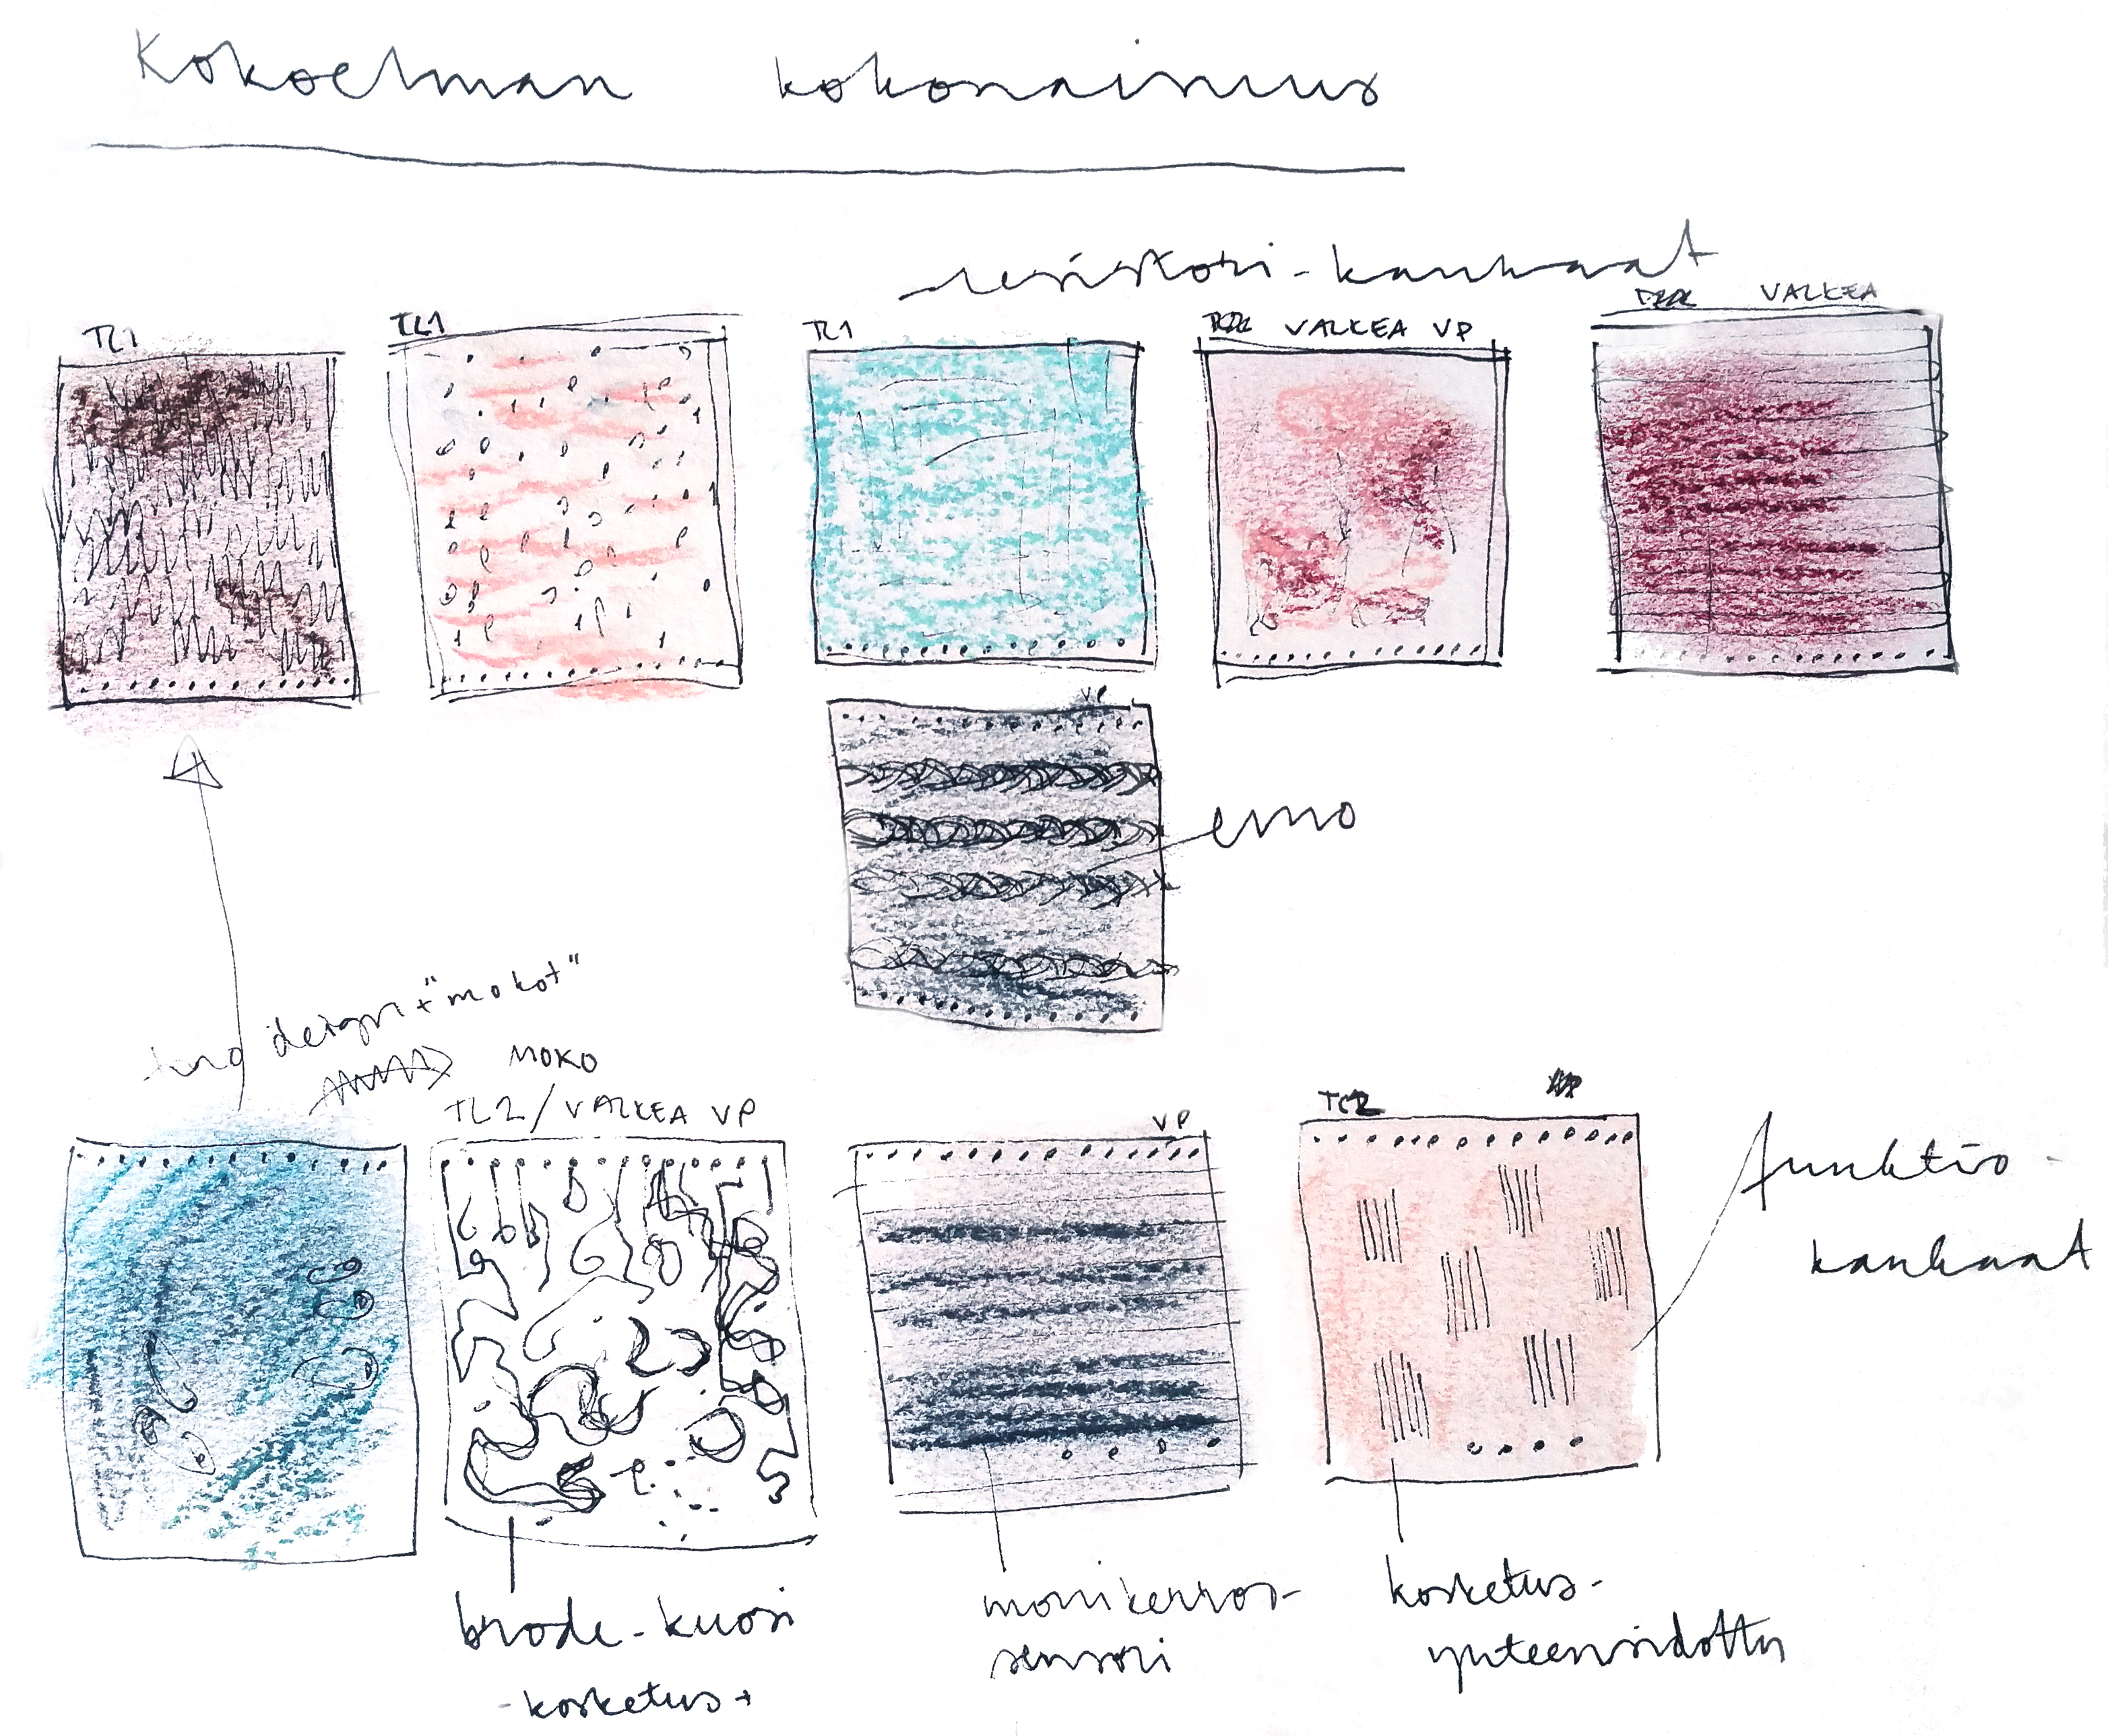 Kokoelman kokonaisuus
resistori-kankaat
TL1
TL1
TL1
VALKEA VP
VALKEA
VP
eino
design + "mokot"
MOKO
TL2/VALKEA VP
VP
funktio-
kankaat
brode-kuosi
-kosketus+
monikerros-
sensori
kosketus-
yhteensidottu